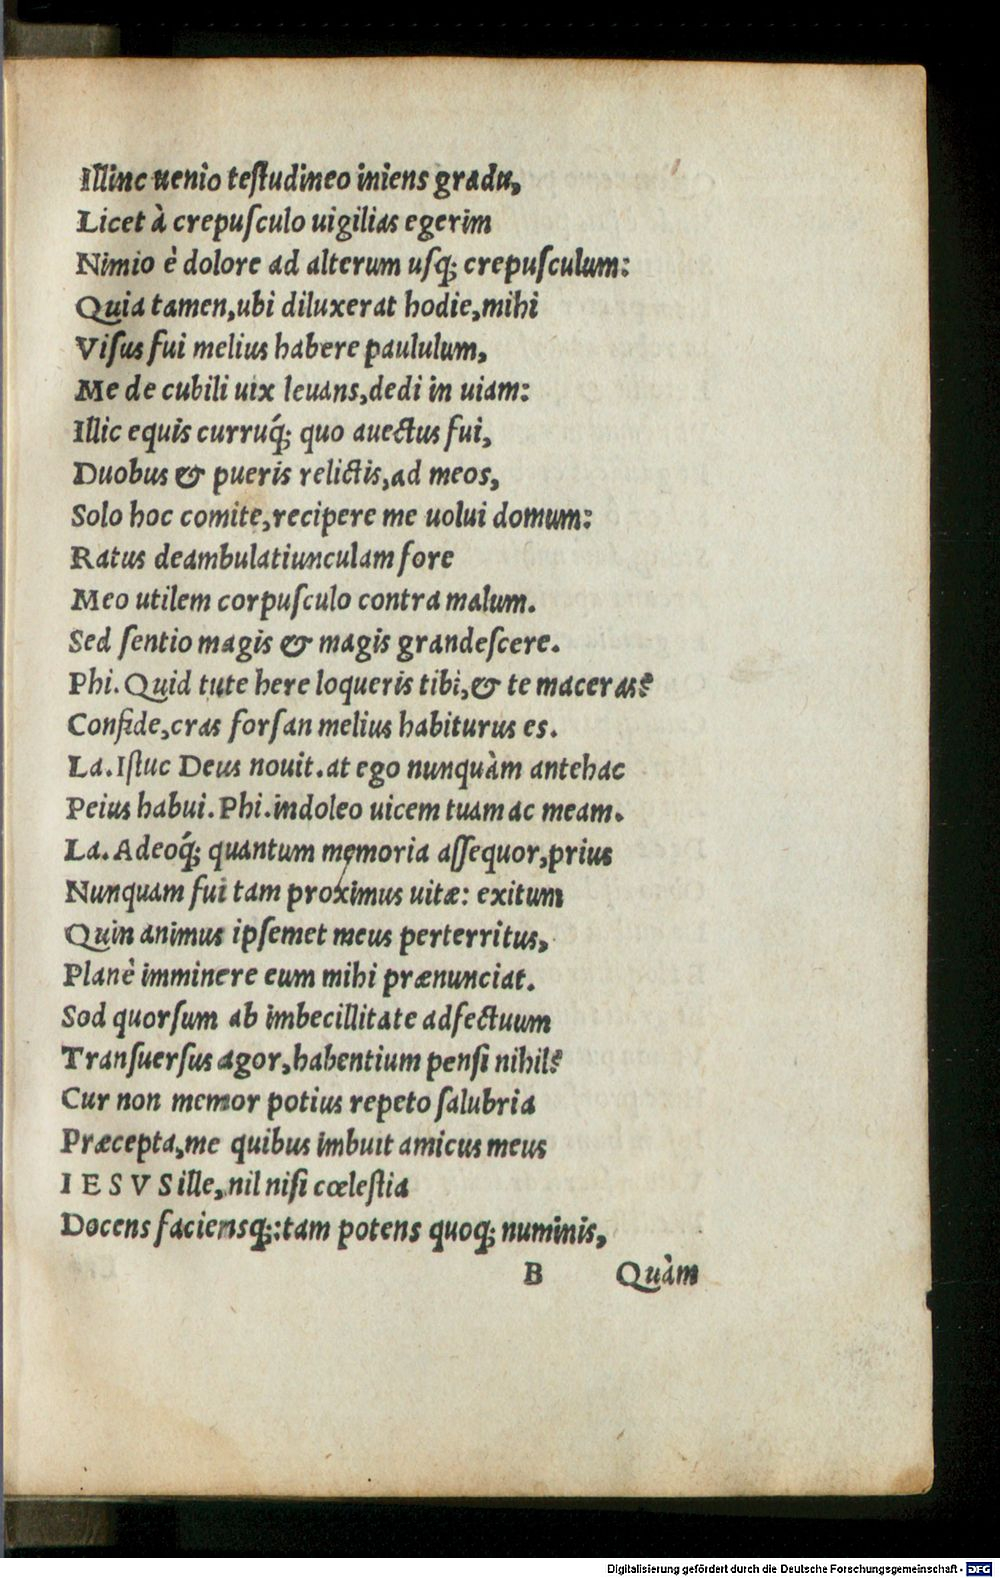 Illinc uenio teſtudineo iniens gradu,
Licet à crepuſculo uigilias egerim
Nimio è dolore ad alterum uſq; crepuſculum:
Quia tamen, ubi diluxerat hodie, mihi
Viſus fui melius habere paululum,
Me de cubili uix leuans, dedi in uiam:
Illic equis curruq́; quo auectus fui,
Duobus & pueris relictis, ad meos,
Solo hoc comite, recipere me uolui domum:
Ratus deambulatiunculam fore
Meo utilem corpuſculo contra malum.
Sed ſentio magis & magis grandeſcere.
Phi. Quid tute here loqueris tibi, & te maceras?
Confide, cras forſan melius habiturus es.
La. Iſtuc Deus nouit. at ego nunquàm antehac
Peius habui. Phi. indoleo uicem tuam ac meam.
La. Adeoq́; quantum memoria aſſequor, prius
Nunquam fui tam proximus uitæ: exitum
Quin animus ipſemet meus perterritus,
Planè imminere eum mihi prænunciat.
Sod quorſum ab imbecillitate adfectuum
Tranſuerſus agor, habentium penſi nihil?
Cur non memor potius repeto ſalubria
Præcepta, me quibus imbuit amicus meus
IESVS ille, nil niſi cœleſtia
Docens faciensq;: tam potens quoq; numinis,
B Quàm
Digitalisierung gefördert durch die Deutsche Forschungsgemeinschaft - DFG